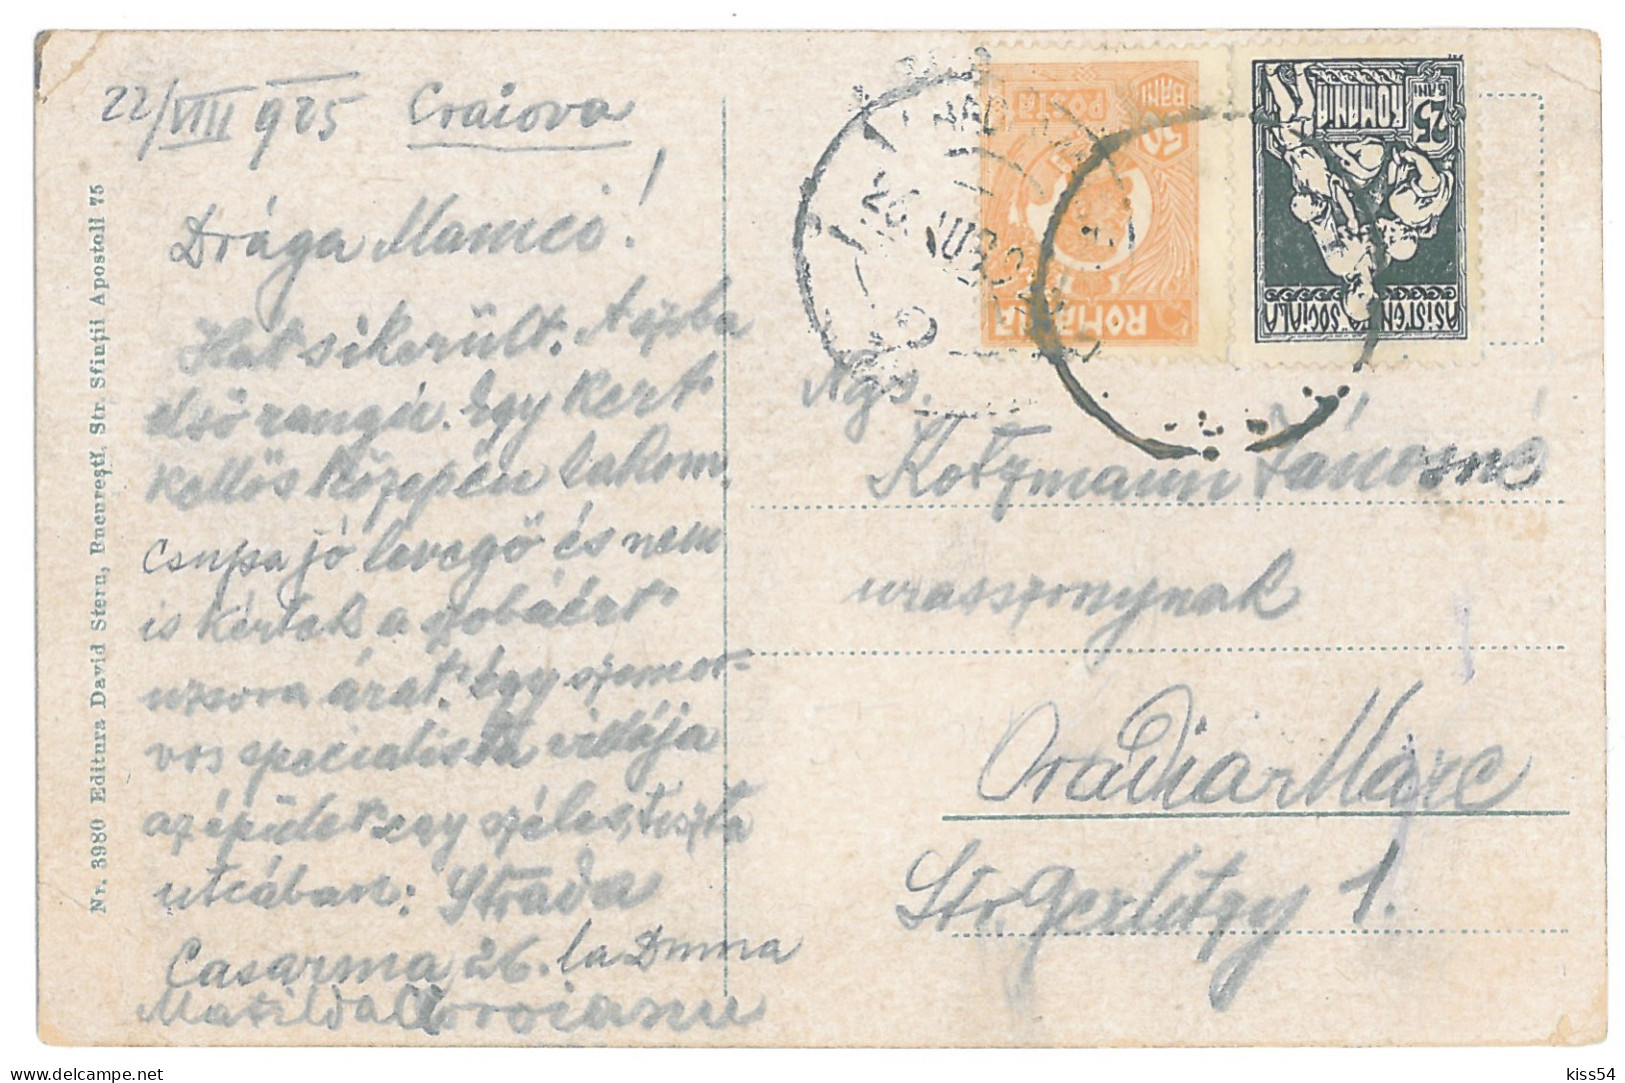 22/VIII 925 Craiova
Drága Mamcó!
Hat sikerült. A szoba
elsőrangú. Egy kert
kellős közepén lakom,
csupa jó levegő és nem
is kértek a szobáért
uzsora árat. Egy szemor-
vos specialista villája
az épület egy széles, tiszta
utcában: Strada
Casarma 26. la Dmna
Matilda
Nr. 3980 Editura David Stern, Bucureștĭ, Str. Sfinții Apostoli 75
POSTA
50 BANI
ROMANIA
25 BANI
ROMANIA
ASISTENȚA SOCIALA
26 AUG
Ngs.
Kotzmann Jánosné
urasszonynak
Oradia Mare
Str. Gerlitzy 1.
kiss54